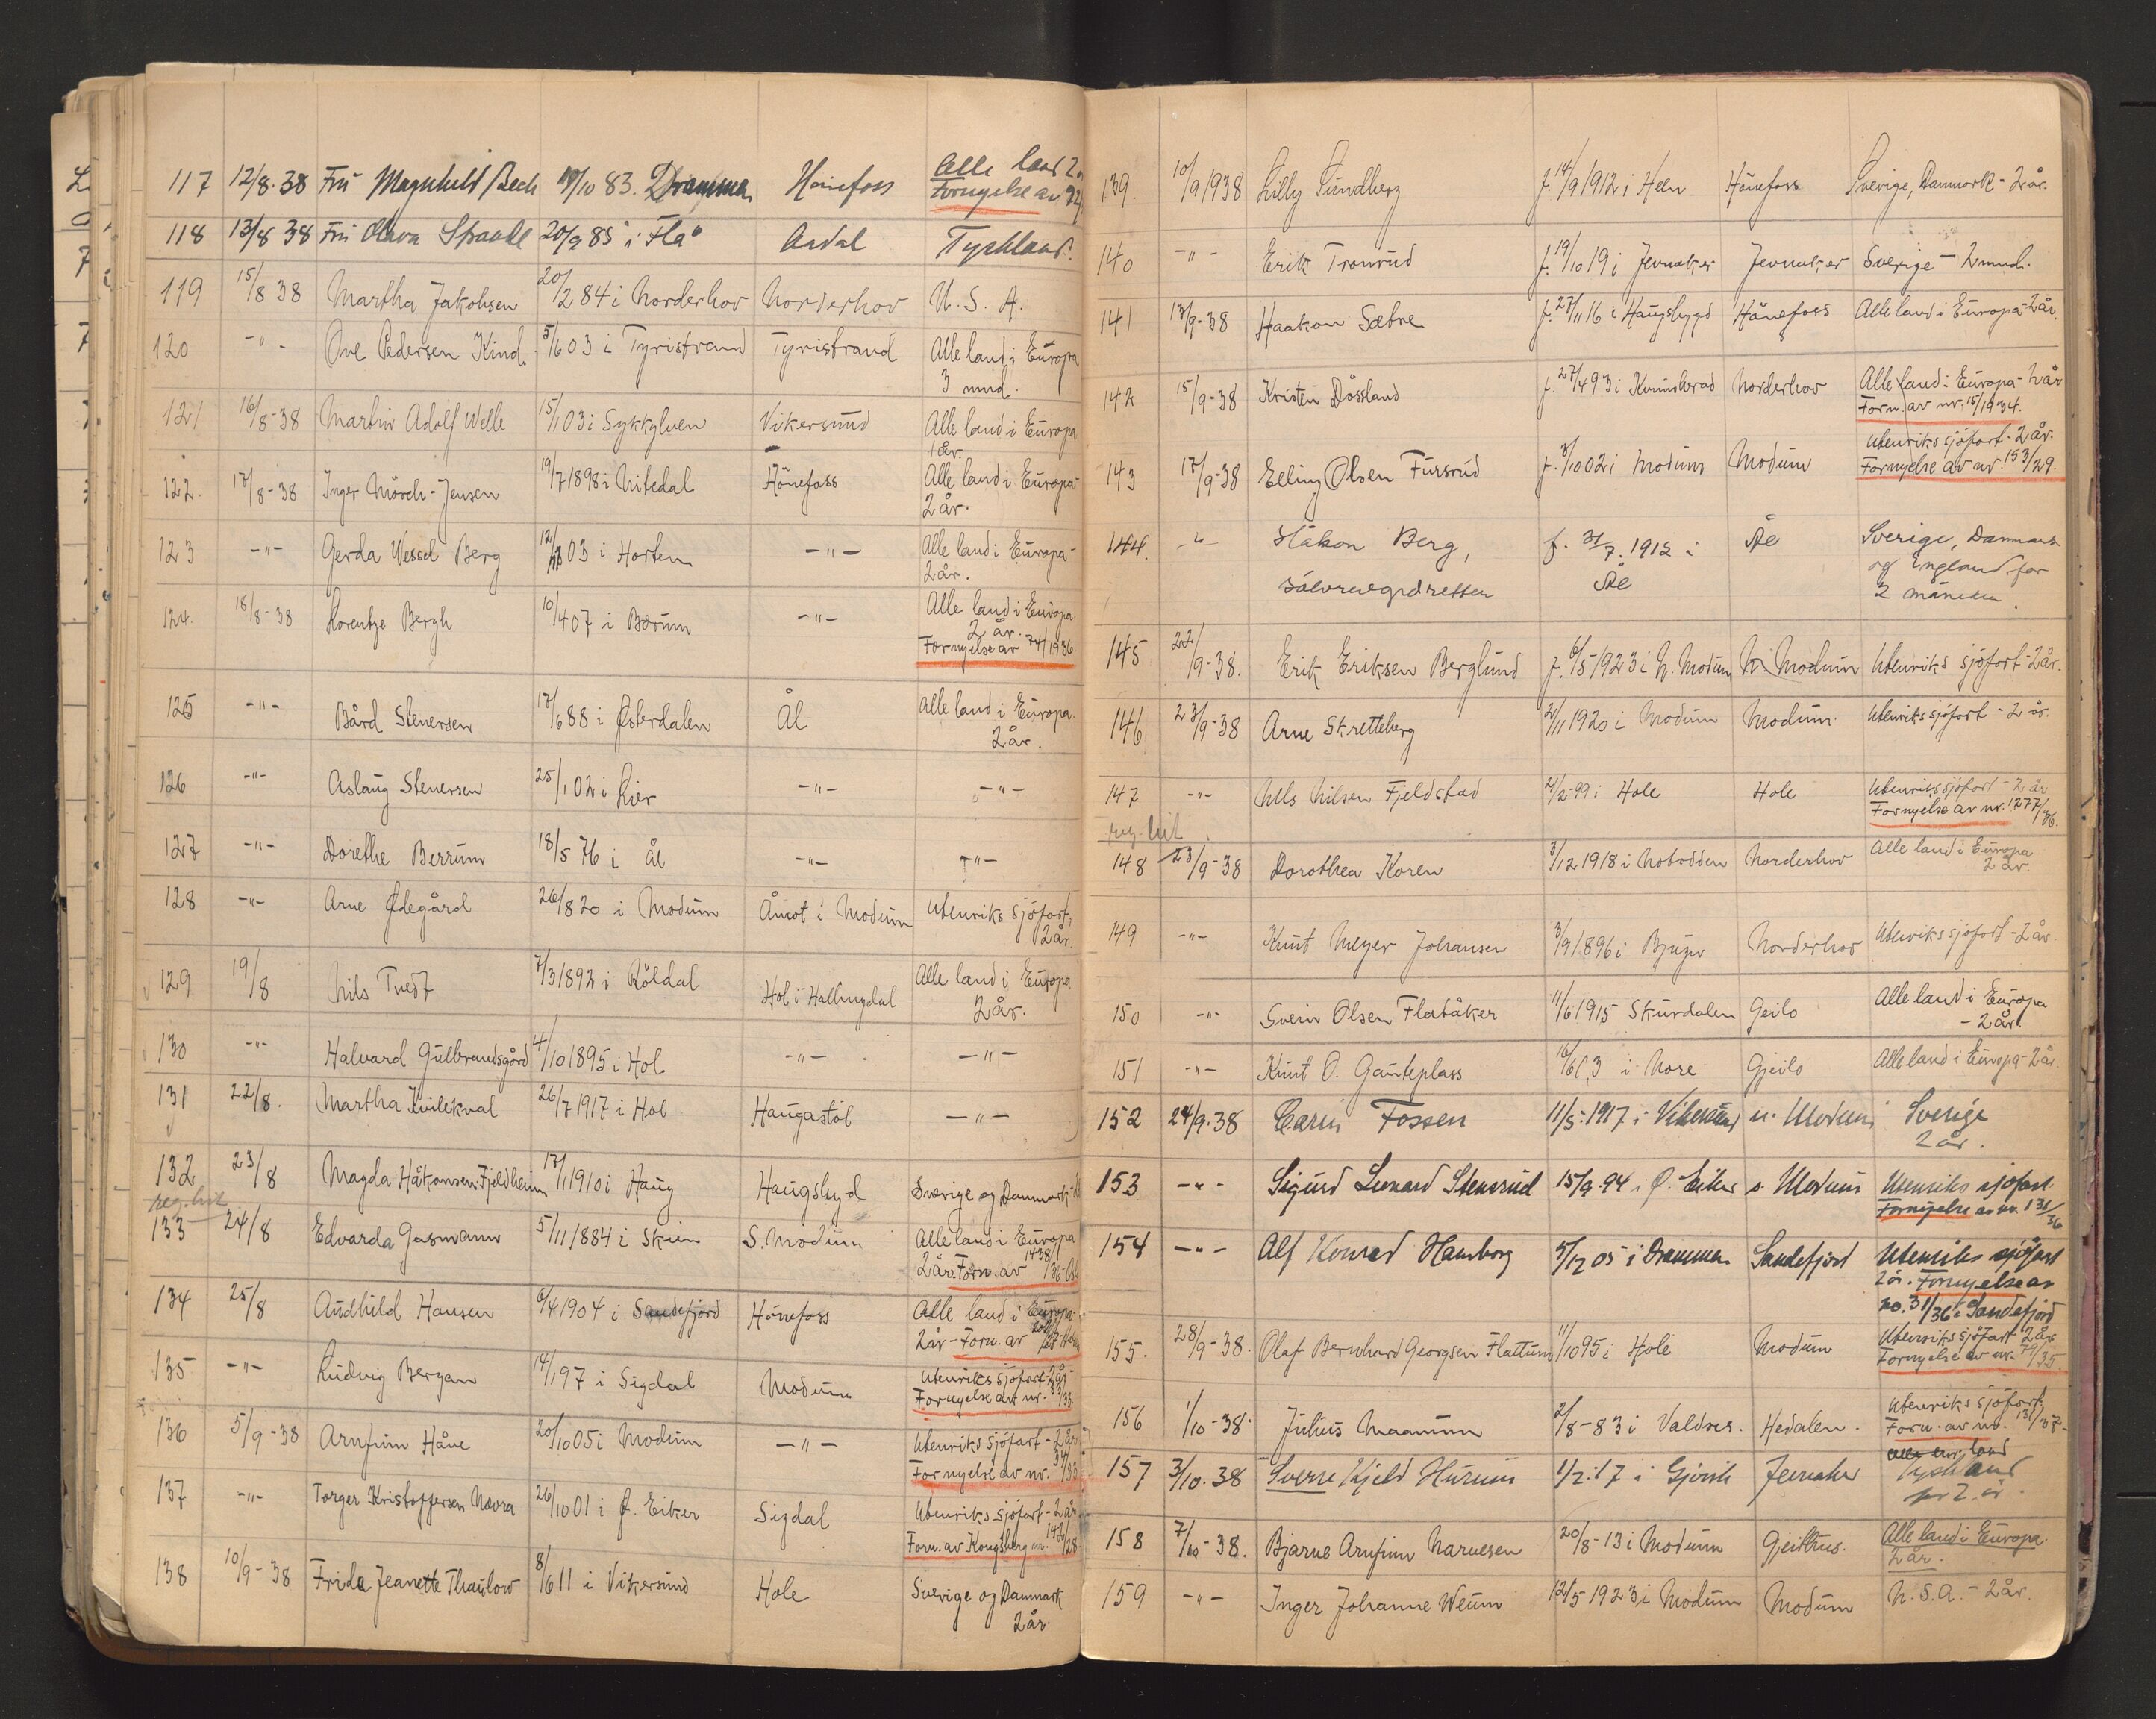 117 12/8.38 Fru Magnhild Bech 19/10 83. Drammen Hönefoss Alle land 2
Fornyelse av
118 13/8 38 Fru Olava Strande 20/9 85 i Flå Aadal Tyskland.
119 15/8 38 Martha Jakobsen 20/2 84 i Norderhov Norderhov U.S.A.
120 -"- Ove Pedersen Kind 5/6 03 i Tyristrand Tyristrand Alle land i Europa
3 mnd.
121 16/8-38 Martin Adolf Welle 15/1 03 i Sykkylven Vikersund Alle land i Europa
1 år.
122. 17/8-38 Inger Mörch-Jensen 19/7 1898 i Nitedal Hönefoss Alle land i Europa
2 år.
123 -"- Gerda Wessel Berg 03 i Horten -"- Alle land i Europa-
2 år.
124. 18/8-38 Lorentze Bergh 10/4 07 i Bærum -"- Alle land i Europa
2 år.
Fornyelse av 74/1936
125 -"- Bård Stenersen 17/6 88 i Østerdalen Ål Alle land i Europa
2 år.
126 -"- Aslaug Stenersen 25/1 02 i Lier -"- -"-
127 -"- Dorethe Berrum 18/5 76 i Ål -"- -"-
128 -"- Arne Ødegård 26/8 20 i Modum Åmot i Modum Utenriks sjöfart,
2 år.
129 19/8 Nils Tvedt 7/3 1892 i Röldal Hol i Hallingdal Alle land i Europa
2 år.
130 -"- Halvard Gulbrandsgård 4/10 1895 i Hol -"- -"-
131 22/8. Martha Kvilekval 26/7 1917 i Hol Haugastöl -"-
132 23/8 Magda Håkonsen Fjeldheim 17/1 1910 i Haug Haugsbygd Sverige og Danmark
reg. hit
133 24/8 Edvarda Gasmann 5/11 1884 i Skien S. Modum Alle land i Europa
2 år. Forn. av 1438/36-Oslo
134 25/8 Audhild Hansen 6/4 1904 i Sandefjord Hönefoss Alle land i Europa
2 år - Forn. av
135 -"- Ludvig Bergan 14/1 97 i Sigdal Modum Utenriks sjöfart-2 år-
Fornyelse av nr. 83/33
136 5/9-38 Arnfinn Håve 20/10 05 i Modum -"- Utenriks sjöfart-2 år
Fornyelse av nr. 34/33
137 -"- Torger Kristoffersen Nævra 26/10 01 i Ø. Eiker Sigdal Utenriks sjöfart-2 år.
Forn. av Kongsberg nr. 142/28
138 10/9-38 Frida Jeanette Thaulow 8/6 11 i Vikersund Hole Sverige og Danmark
2 år.
139. 10/9 1938 Lilly Sundberg f. 14/9 1912 i Hem Hönefoss Sverige, Danmark - 2 år.
140 -"- Erik Tronrud f. 19/10 19 i Jevnaker Jevnaker Sverige - 2 mnd.
141 13/9-38 Haakon Sætre f. 27/11 16 i Haugsbygd Hönefoss Alle land i Europa-2 år.
142 15/9-38 Kristen Dössland f. 27/4 93 i Kvinnherad Norderhov Alle land i Europa-2 år
Forn. av nr. 15/1934.
143 17/9-38 Elling Olsen Fursrud f. 3/10 02 i Modum Modum Utenriks sjöfart-2 år.
Fornyelse av nr. 153/29.
144. -"- Håkon Berg, f. 31/7. 1912 i Ål Ål Sverige, Danmark
og England for
2 måneder.
145 22/9-38. Erik Eriksen Berglund f. 6/5 1923 i N. Modum N. Modum Utenriks sjöfart-2 år.
146 23/9-38 Arne Skretteberg 2/11 1920 i Modum Modum. Utenriks sjöfart-2 år.
147 -"- Nils Nilsen Fjeldstad 2/2-99 i Hole Hole Utenriks sjöfart-2 år
Fornyelse av nr. 1277/36.
reg. hit
148 23/9-38 Dorothea Koren 3/12 1918 i Notodden Norderhov Alle land i Europa
2 år.
149 -"- Knut Meyer Johansen 3/9 1896 i Bjugn Norderhov Utenriks sjöfart-2 år.
150 -"- Svein Olsen Flatåker 11/6 1915 Skurdalen Geilo Alle land i Europa
- 2 år.
151 -"- Knut O. Gauteplass i Nore Gjeilo Alle land i Europa-2 år.
152 24/9.38 Carin Fossen 11/5.1917 i Vikersund n. Modum Sverige
2 år.
153 -"- Sigurd Leonard Stensrud 15/9.94 i Ø. Eiker s. Modum Utenriks sjöfart
Fornyelse av nr. 131/36
154 -"- Alf Konrad Hamborg 5/12 05 i Drammen Sandefjord Utenriks sjöfart
2 år. Fornyelse av
no. 31/36 i Sandefjord
155. 28/9-38. Olaf Bernhard Georgsen Flattum 11/10 95 i Hole Modum Utenriks sjöfart 2 år
Fornyelse av nr. 79/35.
156 1/10-38. Julius Maamun 2/8-83 i Valdres. Hedalen. Utenriks sjöfart,
Forn. av nr. 131/37-
157 3/10.38 Sverre Kjeld Hurum 1/2.17 i Gjövik Jevnaker alle eur. land
Tyskland
for 2 år.
158 7/10-38. Bjarne Arnfinn Narvesen 20/8-13 i Modum Geithus. Alle land i Europa
2 år.
159 -"- Inger Johanne Weum 12/5 1923 i Modum Modum U.S.A. - 2 år.